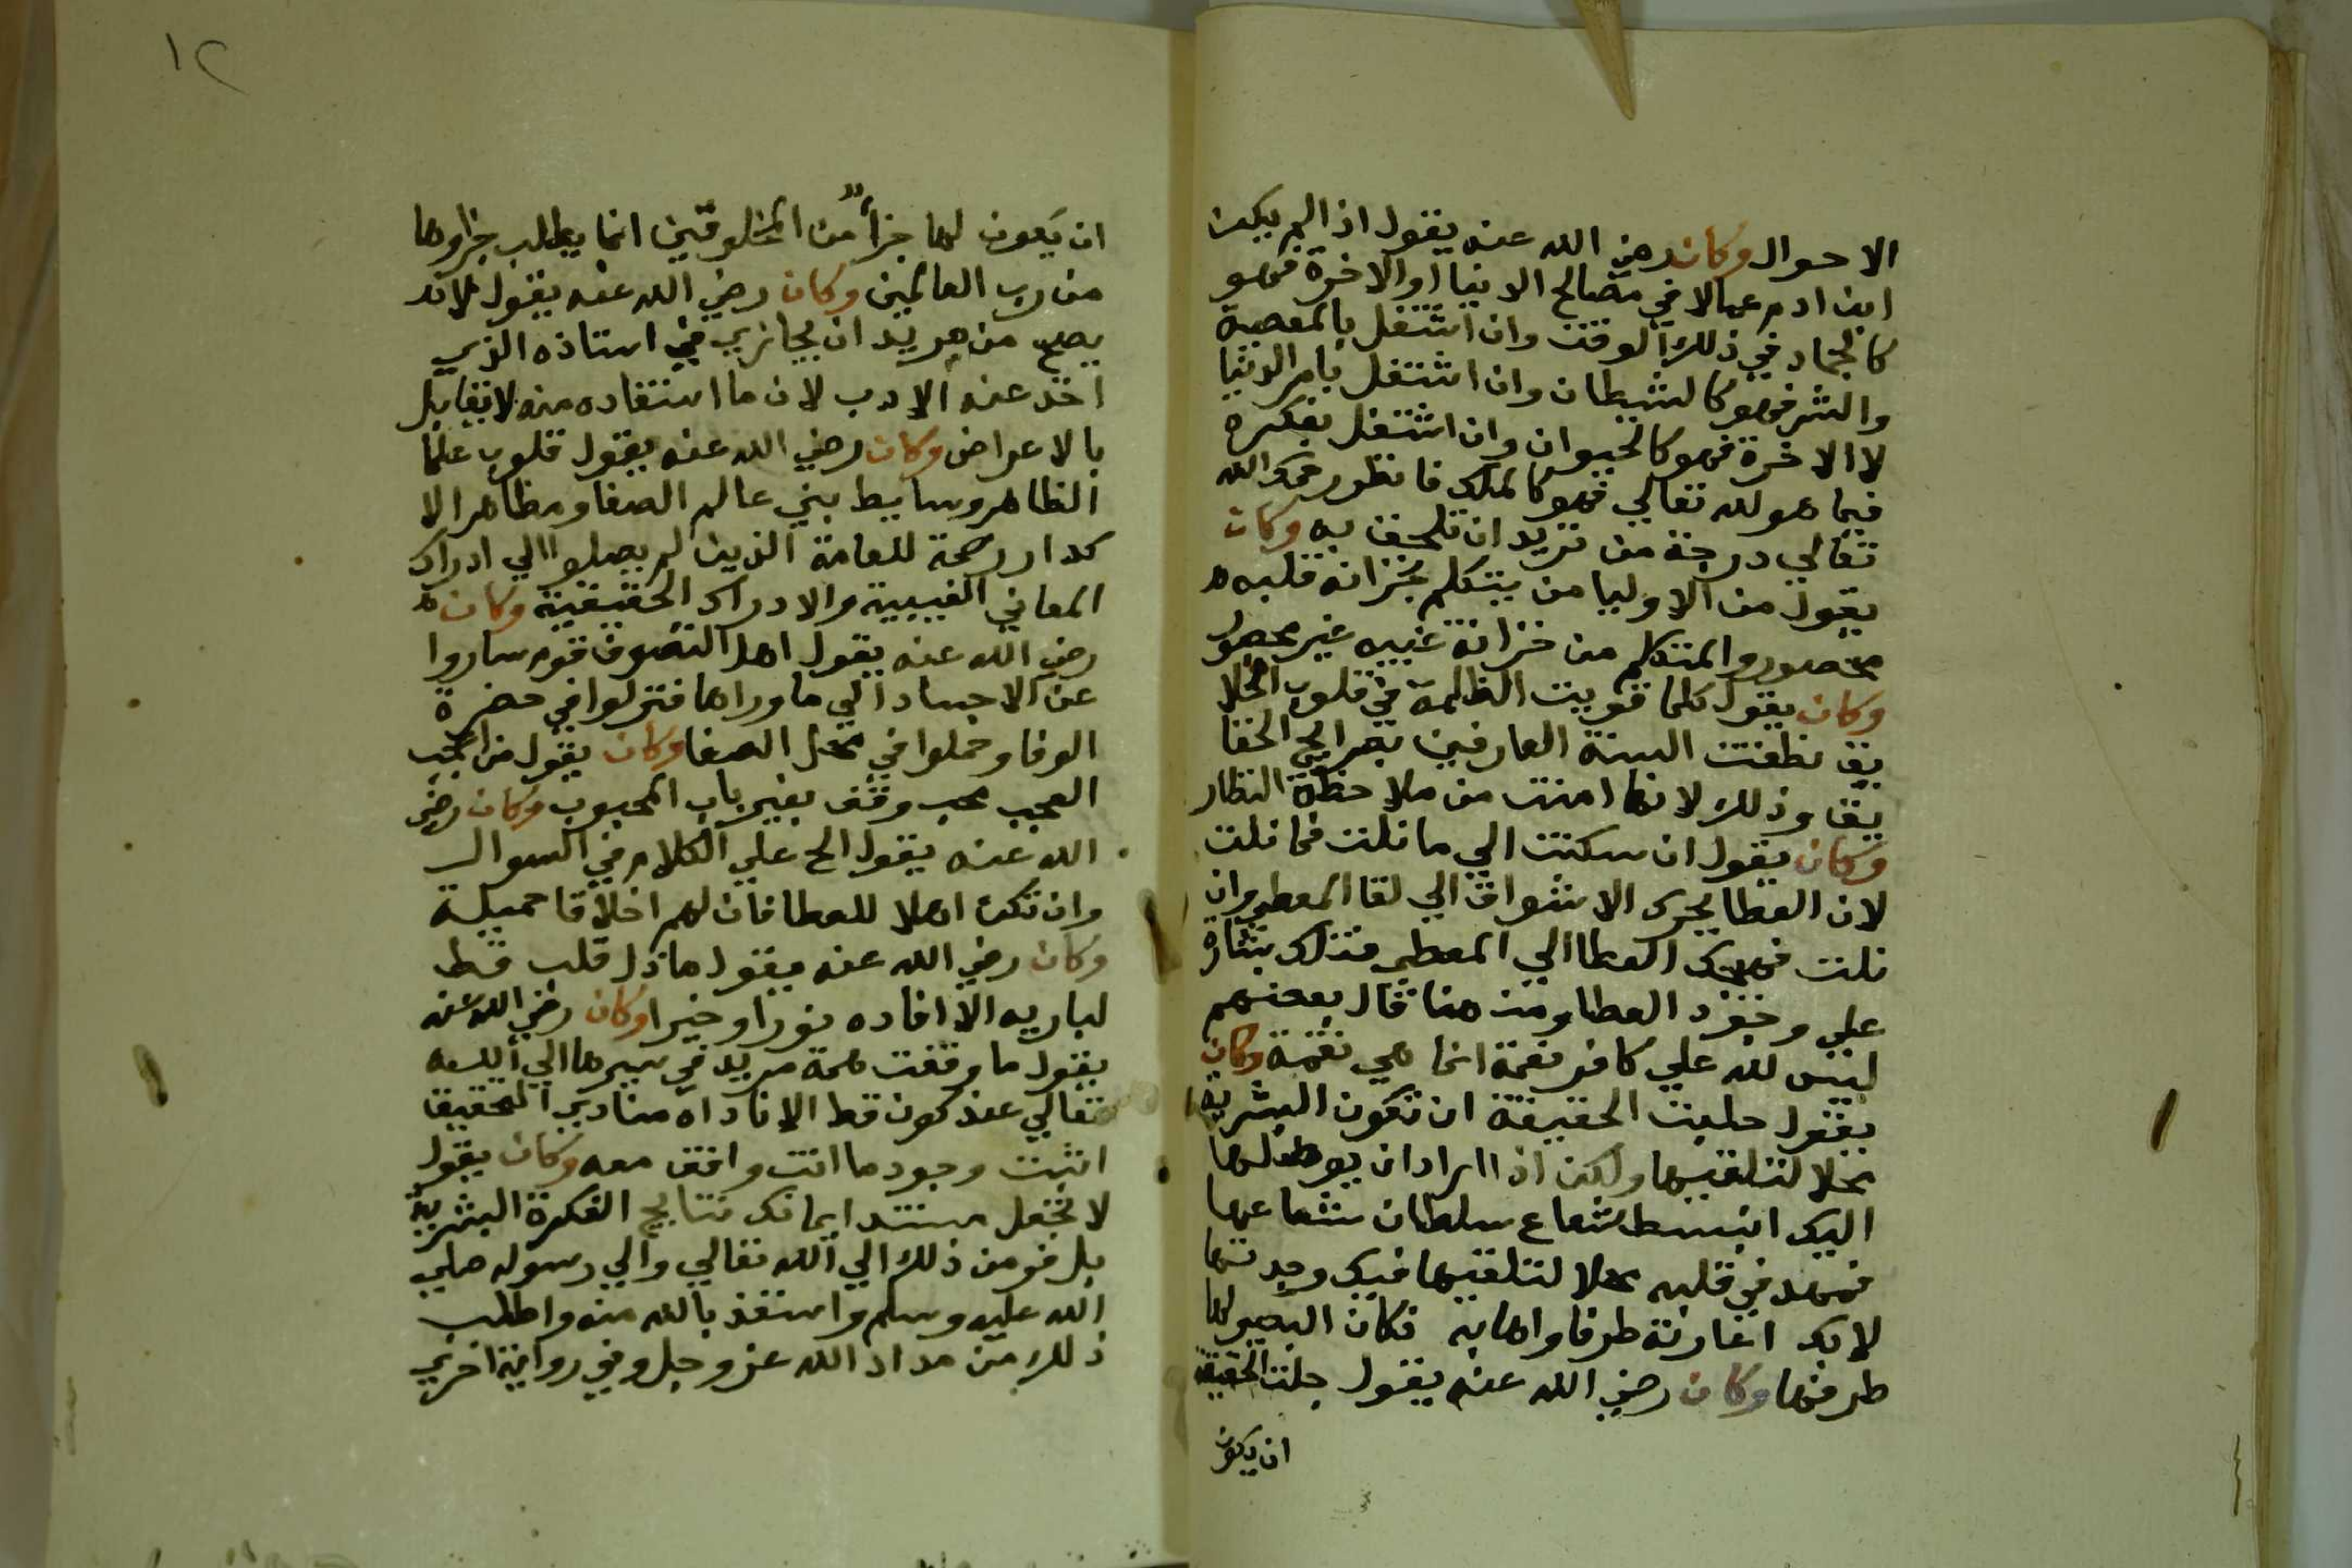 الاحوال وكان رضي الله عنه يقول اذا لم يكن
ابن ادم عمالا في مصالح الدنيا او الاخرة فهو
كالجماد في ذلك الوقت وان اشتغل بالمعصية
والشر فهو كالشيطان وان اشتغل بامر الدنيا
لا الاخرة فهو كالحيوان وان اشتغل بفكره
فيما هو لله تعالي فهو كالملك فانظر رحمك الله
تعالي درجة من تريد ان تلحق به وكان
يقول من الاوليا من يتكلم بخزانة قلبه
محصور والمتكلم من خزانة غيبه غير محصور
وكان يقول كلما قويت الظلمة في قلوب الخلا
يق نطقت السنة العارفين بصرايح الحقا
يق وذلك لانها امنت من ملاحظة النظار
وكان يقول ان سكنت الي ما نلت فما نلت
لان العطا يحرك الاشواق الي لقا المعطي وان
نلت فهمك العطا الي المعطي فتلك بشارة
علي وجود العطا ومن هنا قال بعضهم
ليس لله علي كافر نعمة انما هي نقمة وكان
يقول جلت الحقيقة ان تكون البشرية
محلا لتلقيها ولكن اذا اراد ان يوصلها
اليك انبسط شعاع سلطان شعاعها
فمهد في قلبه محلا لتلقيها فبك وجدتها
لا بك اغارتة طرفا واها به فكان البصير لها
طرفها وكان رضي الله عنه يقول جلت الحقيقة
ان يكون
١٢
ان يكون لها جزأ من المخلوقين انما يطلب جزاوها
من رب العالمين وكان رضي الله عنه يقول لانه
يصح من مريد ان يجازي في استاذه الذي
اخذ عنه الادب لان ما استفاده منه لا تقابل
بالاعراض وكان رضي الله عنه يقول قلوب علما
الظاهر وسايط بين عالم الصفا ومظاهر الا
كدار رحمة للعامة الذين لم يصلوا الي ادراك
المعاني الغيبية والادراك الحقيقية وكان
رضي الله عنه يقول اهل التصوف قوم ساروا
عن الاجساد الي ما وراها فنزلوا في حضرة
الوفا وحملوا في محل الصفا وكان يقول من اعجب
العجب محب وقف بغير باب المحبوب وكان رضي
الله عنه يقول الح علي الكلام في السوال
وان تكن اهلا للعطا فان لهم اخلاقا جميلة
وكان رضي الله عنه يقول ما ذل قلب قط
لباريه الا افاده نورا وخيرا وكان رضي الله عنه
يقول ما وقفت همة مريد في سيرها الي الله
تعالي عند كون قط الا ناداه منادي التحقيق
اثبت وجود ما انت واقف معه وكان يقول
لا تجعل مستند ايمانك نتايج الفكرة البشرية
بل فر من ذلك الي الله تعالي والي رسوله صلي
الله عليه وسلم واستعذ بالله منه واطلب
ذلك من مداد الله عز وجل وفي رواية اخري